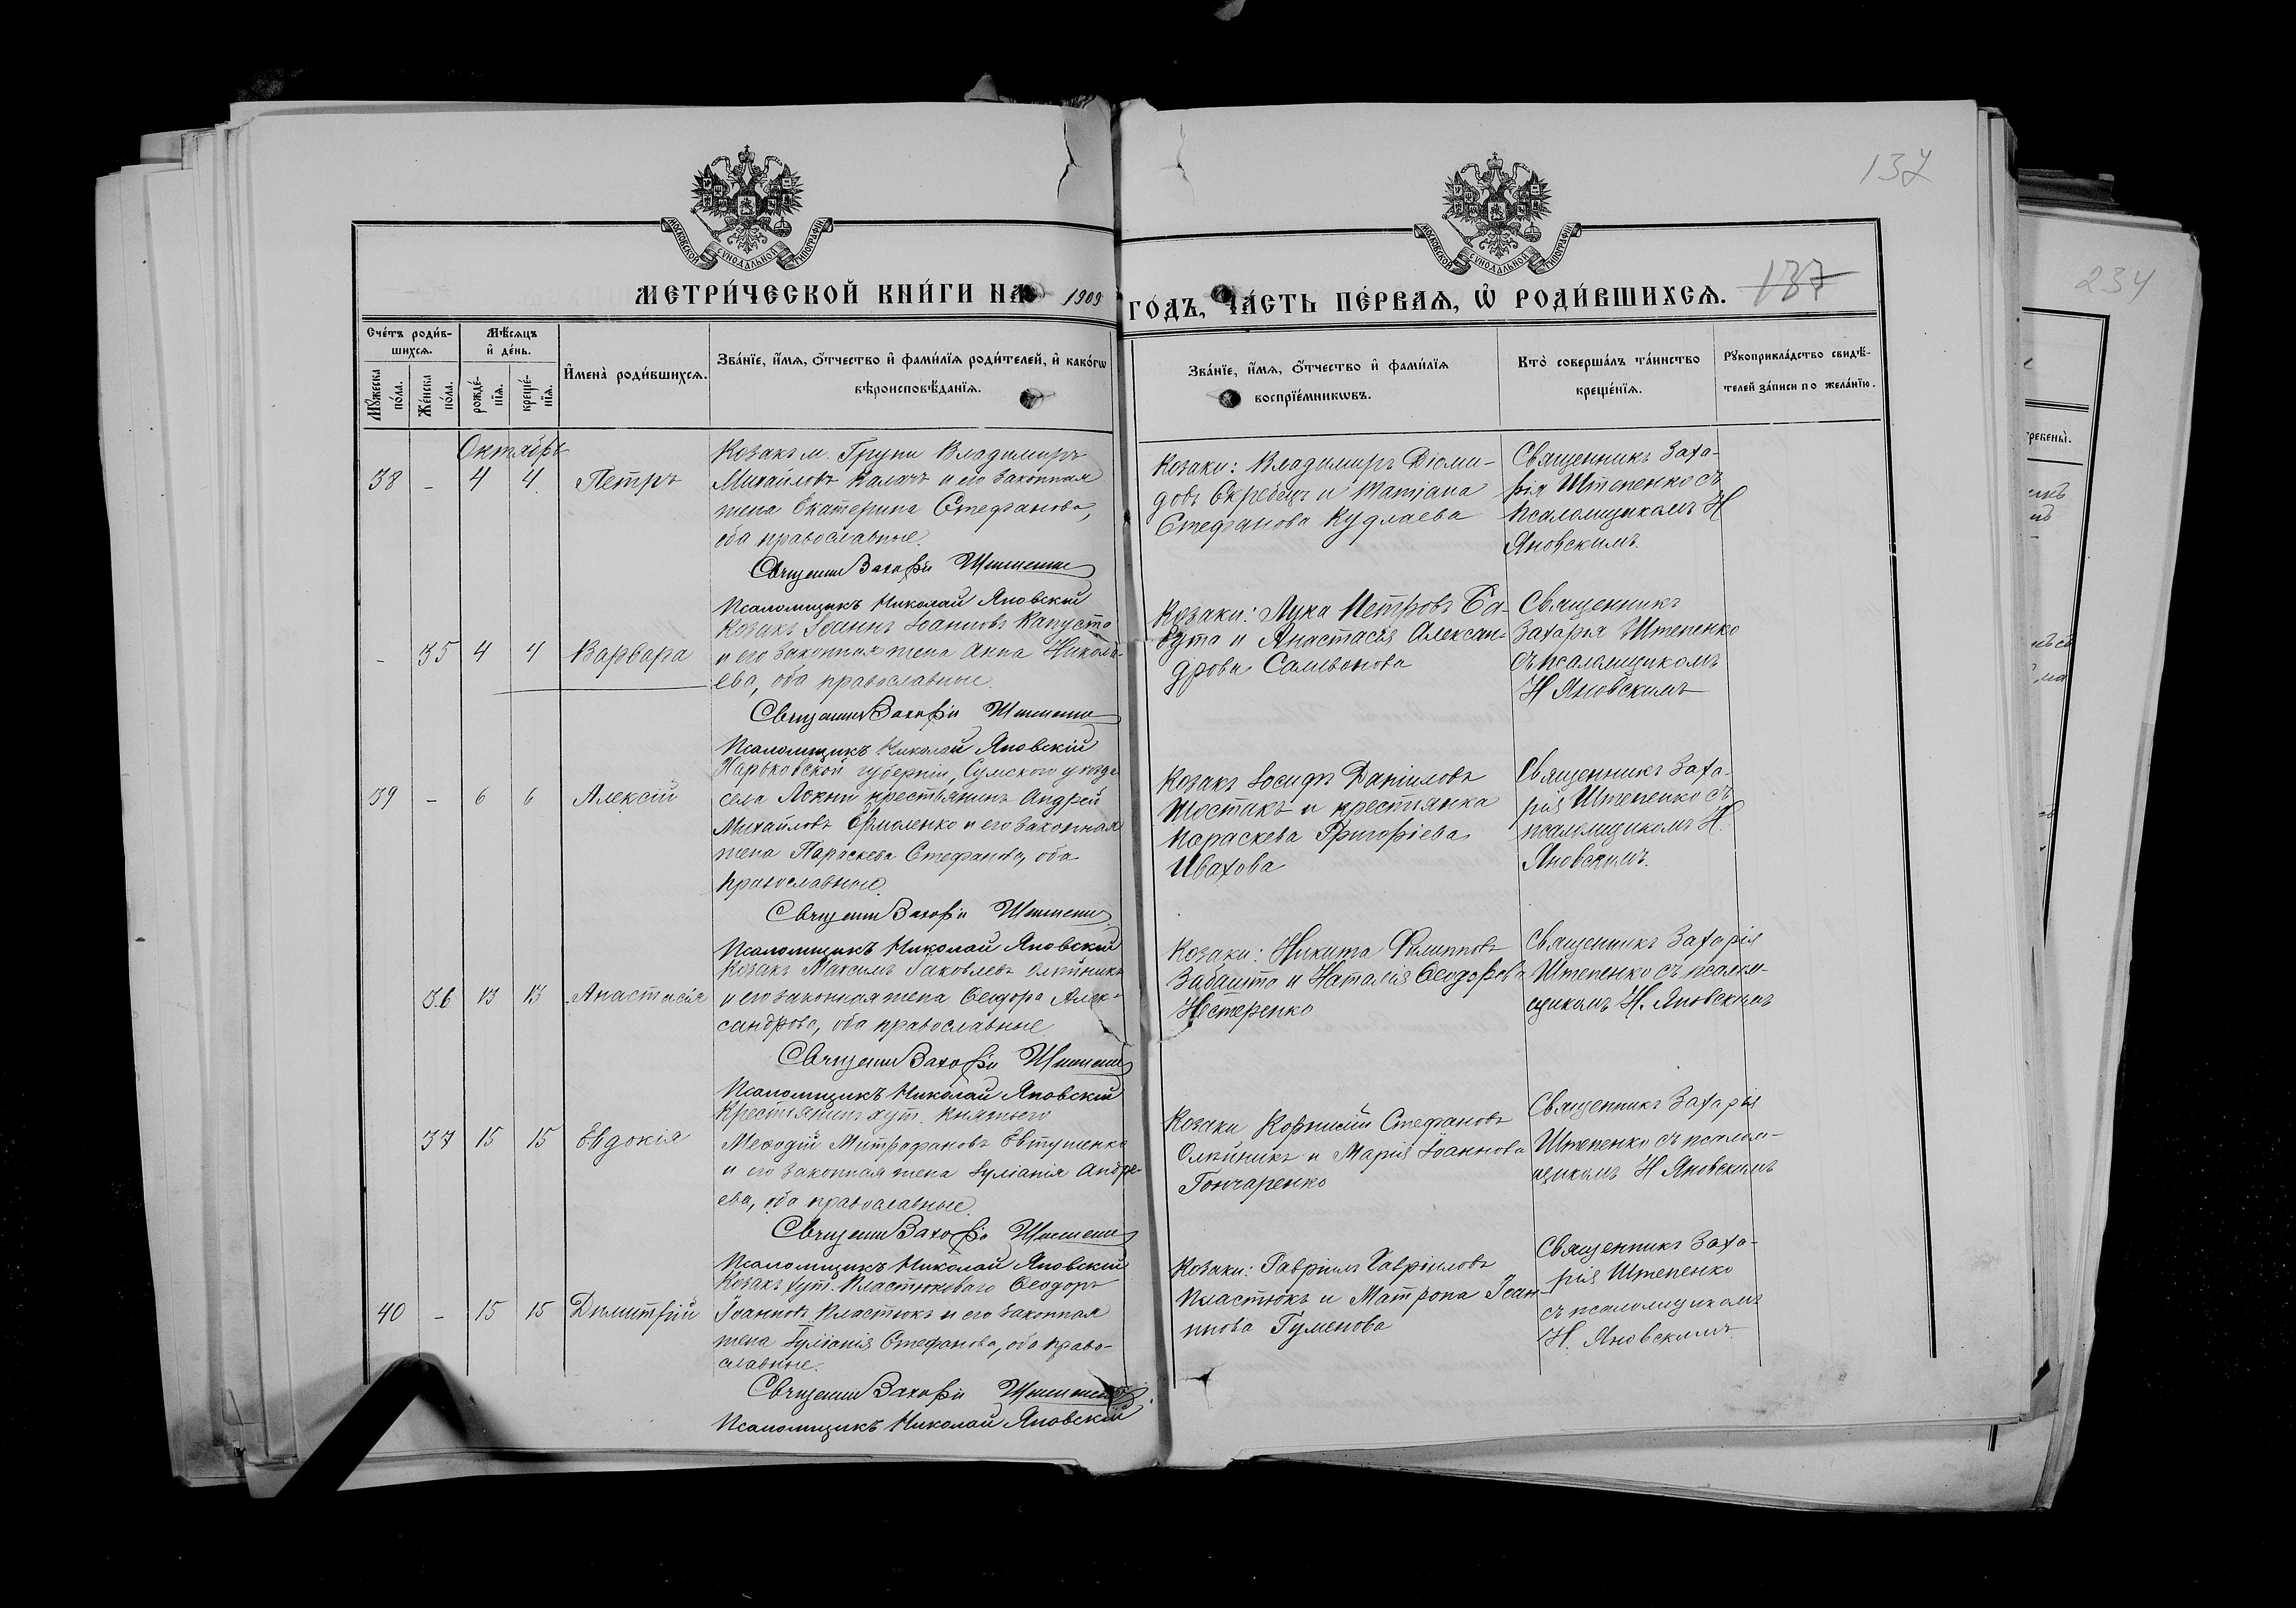 137
МОСКОВСКОЙ СѴНОДАЛЬНОЙ ТИПОГРАФІИ
МОСКОВСКОЙ СѴНОДАЛЬНОЙ ТИПОГРАФІИ
МЕТРИ́ЧЕСКОЙ КНИ́ГИ НА 1909 ГО́ДЪ, ЧА́СТЬ ПЕ́РВАѦ, Ѡ҆ РОДИ́ВШИХСѦ.
137
234
Счéтъ роди́в-
шихсѧ.
Мѣ́сѧцъ
и҆ де́нь.
Мꙋ́жеска
по́ла.
Же́нска
по́ла.
рожде́-
нїѧ.
креще́-
нїѧ.
И҆мена̀ роди́вшихсѧ.
Зва́нїе, и҆́мѧ, ѻ҆́тчество и҆ фами́лїѧ роди́телей, и҆ како́гѡ
вѣроисповѣ́данїѧ.
Зва́нїе, и҆́мѧ, ѻ҆́тчество и҆ фами́лїѧ
воспрїе́мникѡвъ.
Кто̀ соверша́лъ та́инство
креще́нїѧ.
Рꙋкоприкла́дство свидѣ́-
телей за́писи по жела́нїю.
Октябрь
38 - 4 4 Петръ
Козакъ м. Груни Владимиръ
Михайловъ Калачъ и его законная
жена Екатерина Стефанова,
оба православные.
Священ Захарій Штепенко
Псаломщикъ Николай Яновскій
Козаки: Владимиръ Діоми-
довъ Скребецъ и Татіана
Стефанова Кудлаева
Священникъ Заха-
рія Штепенко съ
псаломщикомъ Н
Яновскимъ.
- 35 4 4 Варвара
Козакъ Іоаннъ Іоанновъ Капуста
и его законная жена Анна Никола-
ева, оба православные.
Священ Захарій Штепенко
Псаломщикъ Николай Яновскій
Козаки: Лука Петровъ Ба-
бута и Анастасія Алексан-
дрова Сальвонова
Священникъ
Захарія Штепенко
съ псаломщикомъ
Н Яновскимъ
39 - 6 6 Алексій
Харьковской губерніи, Сумского уѣзда
села Локни крестьянинъ Андрей
Михайловъ Ермоленко и его законная
жена Параскева Стефанова, оба
православные.
Священ Захарій Штепенко
Псаломщикъ Николай Яновскій
Козакъ Іосифъ Даніиловъ
Шостакъ и крестьянка
Параскева Григоріева
Ивахова
Священникъ Заха-
рія Штепенко съ
псаломщикомъ Н.
Яновскимъ.
36 13 13 Анастасія
Козакъ Максимъ Іаковлевъ Олѣйникъ
и его законная жена Ѳеодора Алек-
сандрова, оба православные
Священ Захарій Штепенко
Псаломщикъ Николай Яновскій
Козаки: Никита Филипповъ
Забашта и Наталія Ѳеодорова
Нестеренко
Священникъ Захарія
Штепенко съ псалом-
щикомъ Н. Яновскимъ
37 15 15 Евдокія
Крестьянинъ хут. Княжьего
Меѳодій Митрофановъ Евтушенко
и его законная жена Іуліанія Андре-
ева, оба православные.
Священ Захарій Штепенко
Псаломщикъ Николай Яновскій
Козаки Корнилій Стефановъ
Олѣйникъ и Марія Іоаннова
Гончаренко
Священникъ Захарія
Штепенко съ псалом-
щикомъ Н Яновскимъ
40 - 15 15 Димитрій
Козакъ хут. Пластюковаго Ѳеодоръ
Іоанновъ Пластюкъ и его законная
жена Іуліанія Стефанова, оба право-
славные.
Священ Захарій Штепенко
Псаломщикъ Николай Яновскій
Козаки: Гавріилъ Гавріиловъ
Пластюкъ и Матрона Іоан-
нова Гуменова
Священникъ Заха-
рія Штепенко
съ псаломщикомъ
Н. Яновскимъ